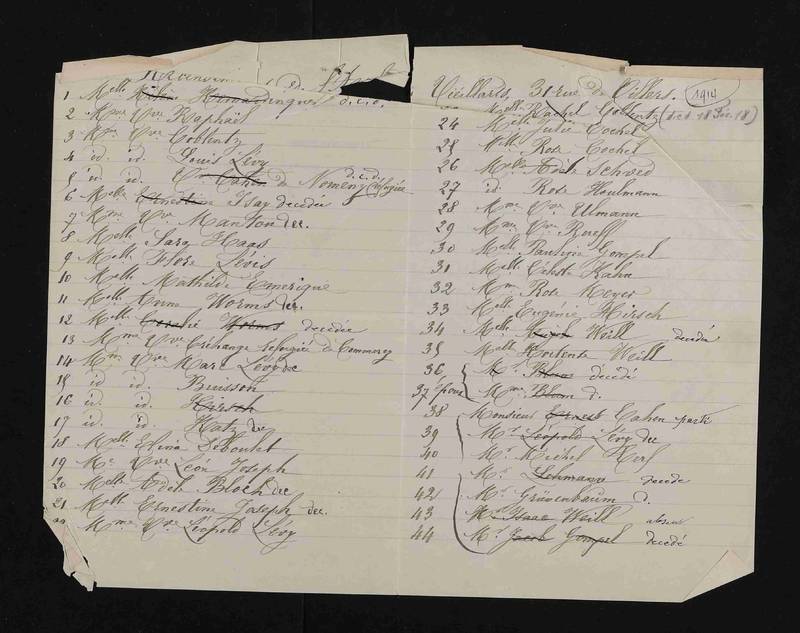 Vieillards, 31 rue de Villers. 1914
1 Melle Hemerdinguer d.c.d.
2 Mme Vve Raphaël
3 Mme Vve Coblentz
4 id. id. Louis Lévy
5 id id. Vve Cahen de Nomeny réfugiée d.c.d.
6 Melle Ernestine Isay décédée
7 Mme Vve Manton dec.
8 Melle Sara Haas
9 Melle Flore Lévis
10 Melle Mathilde Emerique
11 Melle Anna Worms dec.
12 Melle Worms décédée
13 Mme Vve Créhange réfugiée de Commercy
14 Mme Vve Marc Lévy dc
15 id id. Buisson
16 id id. Hirsch
17 id. id. Katz dec
18 Melle
19 Me Vve Léon Joseph
20 Melle Adèle Bloch dec
21 Melle Ernestine Joseph dec.
22 Mme Vve Léopold Lévy
Melle Rachel Coblentz (déc. 18 Déc. 18)
24 Melle Julie Cochel
25 Melle Rose Cochel
26 Melle Adèle Schwed
27 id. Rose Heulmann
28 Mme Vve Ulmann
29 Mme Vve Rueff
30 Melle Pauline Gompel
31 Melle Céleste Kahn
32 Mme Rose Meyer
33 Melle Eugénie Hirsch
34 Melle Weill décédée
35 Melle Hortense Weill
36 Mr. Blum décédé
37 époux Mme Blum d.
38 Monsieur Ernest Cahen parti
39 Mr Léopold Lévy dec
40 Mr Michel Kerf
41 Mr Lehmann décédé
42 Mr Grüvenbaüm d.
43 Mr Isaac Weill absent
44 Mr Jacob Gompel décédé